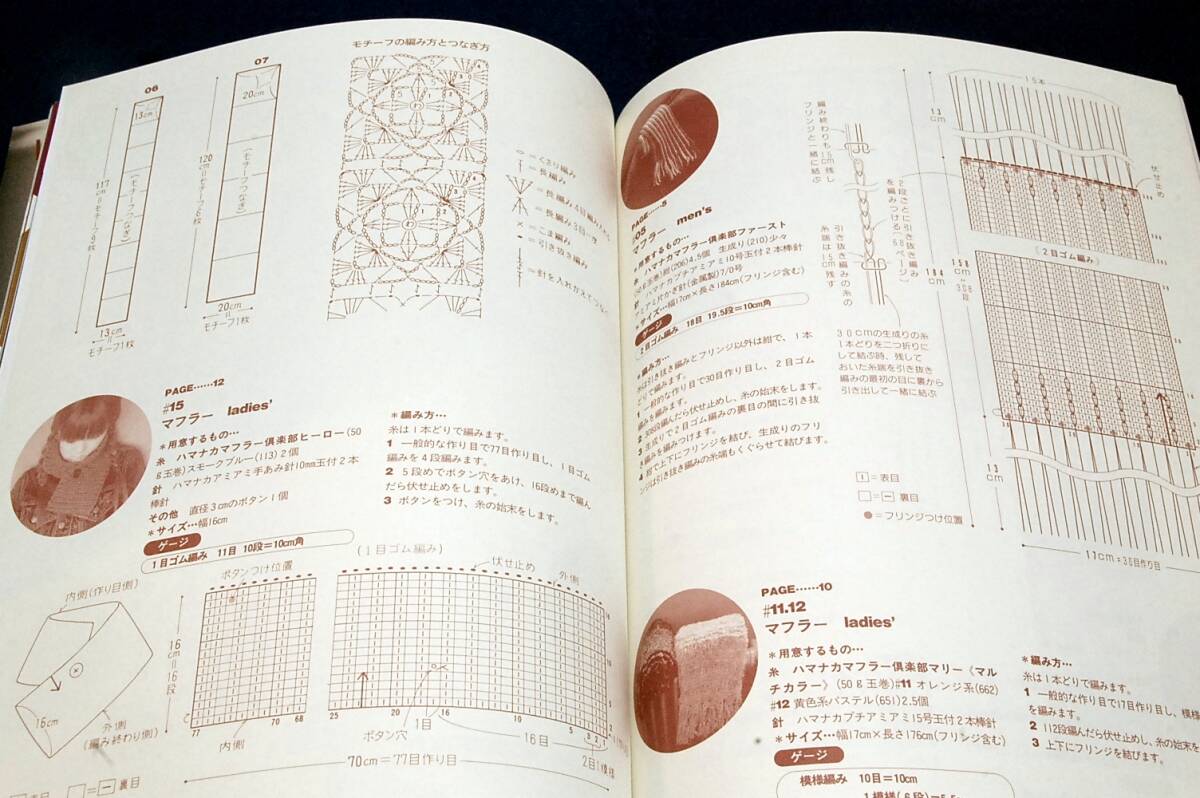 06
07
モチーフの編み方とつなぎ方
13cm
20cm
117cm=モチーフ9枚
(モチーフつなぎ)
120cm=モチーフ6枚
(モチーフつなぎ)
13cm
=
モチーフ1枚
20cm
=
モチーフ1枚
=くさり編み
=長編み
=こま編み
=引き抜き編み
PAGE……12
#15
マフラー ladies'
*用意するもの…
糸 ハマナカマフラー倶楽部ヒーロー(50
g玉巻)スモークブルー(113)2個
針 ハマナカアミアミ手あみ針10mm玉付2本
棒針
その他 直径3cmのボタン1個
*サイズ…幅16cm
ゲージ
1目ゴム編み 11目 10段=10cm角
*編み方…
糸は1本どりで編みます。
1 一般的な作り目で77目作り目し、1目ゴム
編みを4段編みます。
2 5段めでボタン穴をあけ、16段めまで編ん
だら伏せ止めをします。
3 ボタンをつけ、糸の始末をします。
内側(作り目側)
16cm
外側
(編み終わり側)
16cm=16段
ボタンつけ位置
77
70
68
内側
(1目ゴム編み)
伏せ止め
外側
25
20
16
10
5
3
2
1
1目
ボタン穴
16目
2目1模様
70cm=77目作り目
=裏目
PAGE……5
#05
マフラー men's
*用意するもの…
糸 ハマナカマフラー倶楽部ファースト
針 ハマナカプチアミアミ10号玉付2本棒針
アミアミ片かぎ針(金属製)7/0号
*サイズ…幅17cm×長さ184cm(フリンジ含む)
ゲージ
2目ゴム編み 18目 19.5段=10cm角
*編み方…
糸は引き抜き編みとフリンジ以外は紺で、1本
どりで編みます。
1 一般的な作り目で30目作り目し、2目ゴム
編みを編みます。
2 308段編んだら伏せ止めし、糸の始末をします。
3 生成りで2目ゴム編みの裏目の間に引き抜
き編みを編みつけます。
4 紺で上下にフリンジを結び、生成りのフリ
ンジは引き抜き編みの糸端もくぐらせて結びます。
編み終わりも15cm残し
フリンジと一緒に結ぶ
2段ごとに引き抜き編み
を編みつける(68ページ)
引き抜き編みの糸の
糸端は15cm残す
30cmの生成りの糸
1本どりを二つ折りに
して結ぶ時、残して
おいた糸端を引き抜き
編みの最初の目に裏から
引き出して一緒に結ぶ
15本
13cm
伏せ止め
(2目ゴム編み)
184cm
158cm=308段
13cm
=表目
=裏目
●=フリンジつけ位置
17cm=30目作り目
PAGE……10
#11.12
マフラー ladies'
*用意するもの…
糸 ハマナカマフラー倶楽部マリー《マル
チカラー》(50g玉巻)#11 オレンジ系(662)
#12 黄色系パステル(651)2.5個
針 ハマナカプチアミアミ15号玉付2本棒針
*サイズ…幅17cm×長さ176cm(フリンジ含む)
ゲージ
模様編み 10目=10cm
1模様(6段)=5.5
*編み方…
糸は1本どりで編みます。
1 一般的な作り目で17目作り目し、模様
を編みます。
2 112段編んだら伏せ止めし、糸の始末
3 上下にフリンジを結びます。